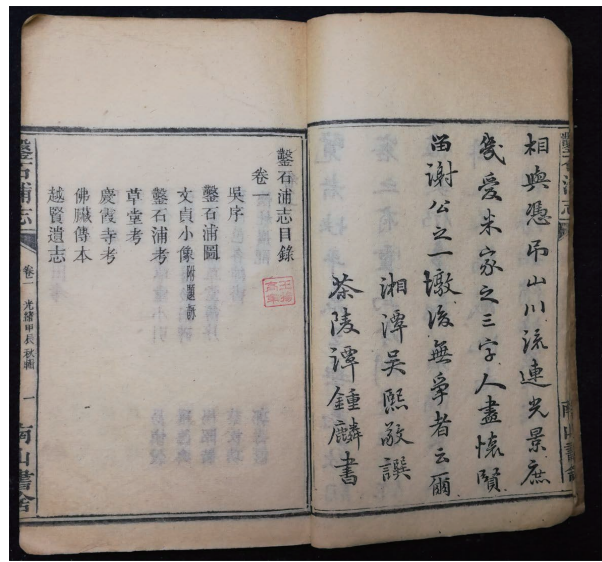 相與憑弔山川流連光景庶
幾愛朱家之三字人盡懷賢
留謝公之一墩後無爭者云爾
湘潭吳熙敬譔
茶陵譚鍾麟書
南山書舍
鑿石浦志目錄
卷一
吳序
鑿石浦圖
文貞小像
鑿石浦考
草堂考
慶霞寺考
佛臟傳本
越賢遺志
鑿石浦志
卷一
光緒甲辰秋輯
一
南山書舍